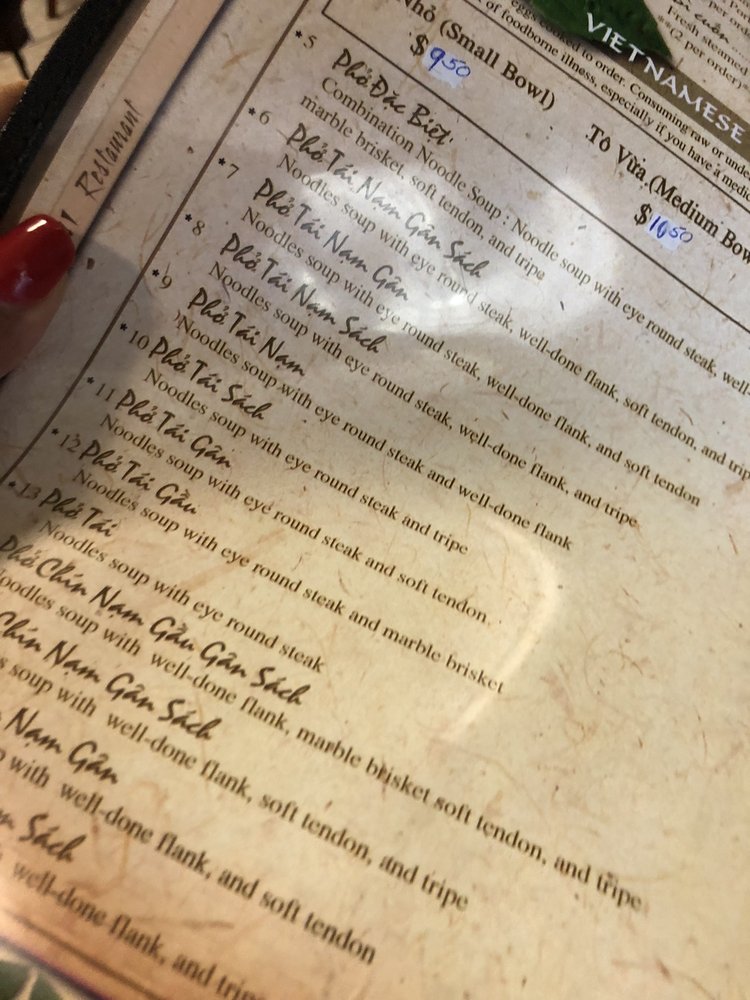 Restaurant
VIETNAMESE
Fresh steamed
(2 per order)
eggs cooked to order. Consuming raw or unde
of foodborne illness, especially if you have a med
Nhỏ (Small Bowl)
$9.50
Tô Vừa (Medium Bow
$10.50
*5 Phở Đặc Biệt
Combination Noodle Soup : Noodle soup with eye round steak, well
marble brisket, soft tendon, and tripe
*6 Phở Tái Nạm Gân Sách
Noodles soup with eye round steak, well-done flank, soft tendon, and trip
*7 Phở Tái Nạm Gân
Noodles soup with eye round steak, well-done flank, and soft tendon
*8 Phở Tái Nạm Sách
Noodles soup with eye round steak, well-done flank, and tripe
*9 Phở Tái Nạm
Noodles soup with eye round steak and well-done flank
*10 Phở Tái Sách
Noodles soup with eye round steak and tripe
*11 Phở Tái Gân
Noodles soup with eye round steak and soft tendon
*12 Phở Tái Gầu
Noodles soup with eye round steak and marble brisket
*13 Phở Tái
Noodles soup with eye round steak
Phở Chín Nạm Gầu Gân Sách
Noodles soup with well-done flank, marble brisket soft tendon, and tripe
Chín Nạm Gân Sách
s soup with well-done flank, soft tendon, and tripe
Nạm Gân
with well-done flank, and soft tendon
m Sách
well-done flank, and trip